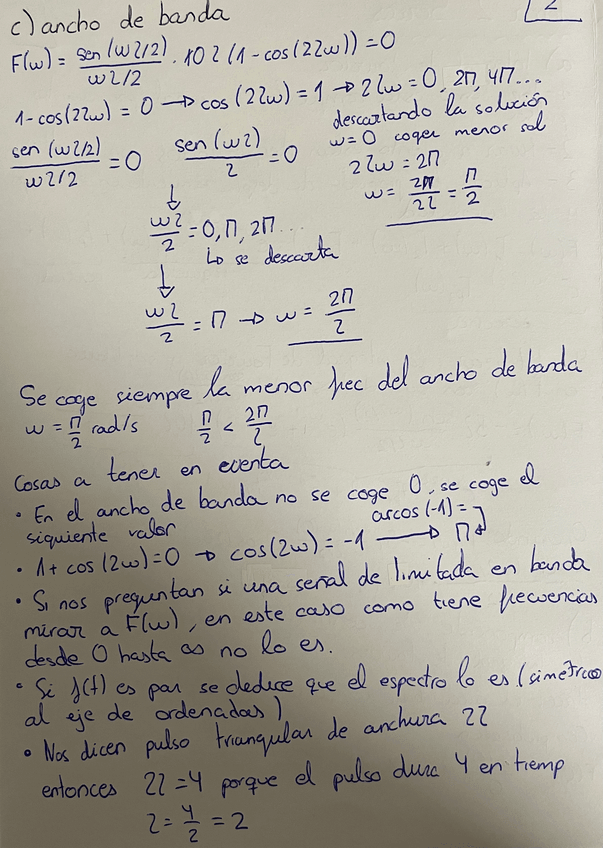 2
c) ancho de banda
F(w) = sen(w2/2)/w2/2 · 10 2 (1 - cos(22w)) = 0
1 - cos(22w) = 0 → cos(22w) = 1 → 22w = 0, 2π, 4π...
descartando la solución
w=0 coger menor sol
sen(w2/2)/w2/2 = 0 sen(w2)/2 = 0
22w = 2π
w = 2π/22 = π/2
↓
w2/2 = 0, π, 2π...
↳ se descarta
↓
w2/2 = π → w = 2π/2
Se coge siempre la menor frec del ancho de banda
w = π/2 rad/s π/2 < 2π/2
Cosas a tener en cuenta
• En el ancho de banda no se coge 0, se coge el
siguiente valor
arcos(-1) =
• 1 + cos(2w) = 0 → cos(2w) = -1 → π
• Si nos preguntan si una señal de limitada en banda
mirar a F(w), en este caso como tiene frecuencias
desde 0 hasta ∞ no lo es.
• Si f(t) es par se deduce que el espectro lo es (simétrico
al eje de ordenadas)
• Nos dicen pulso triangular de anchura 22
entonces 22 = 4 porque el pulso dura 4 en tiemp
2 = 4/2 = 2